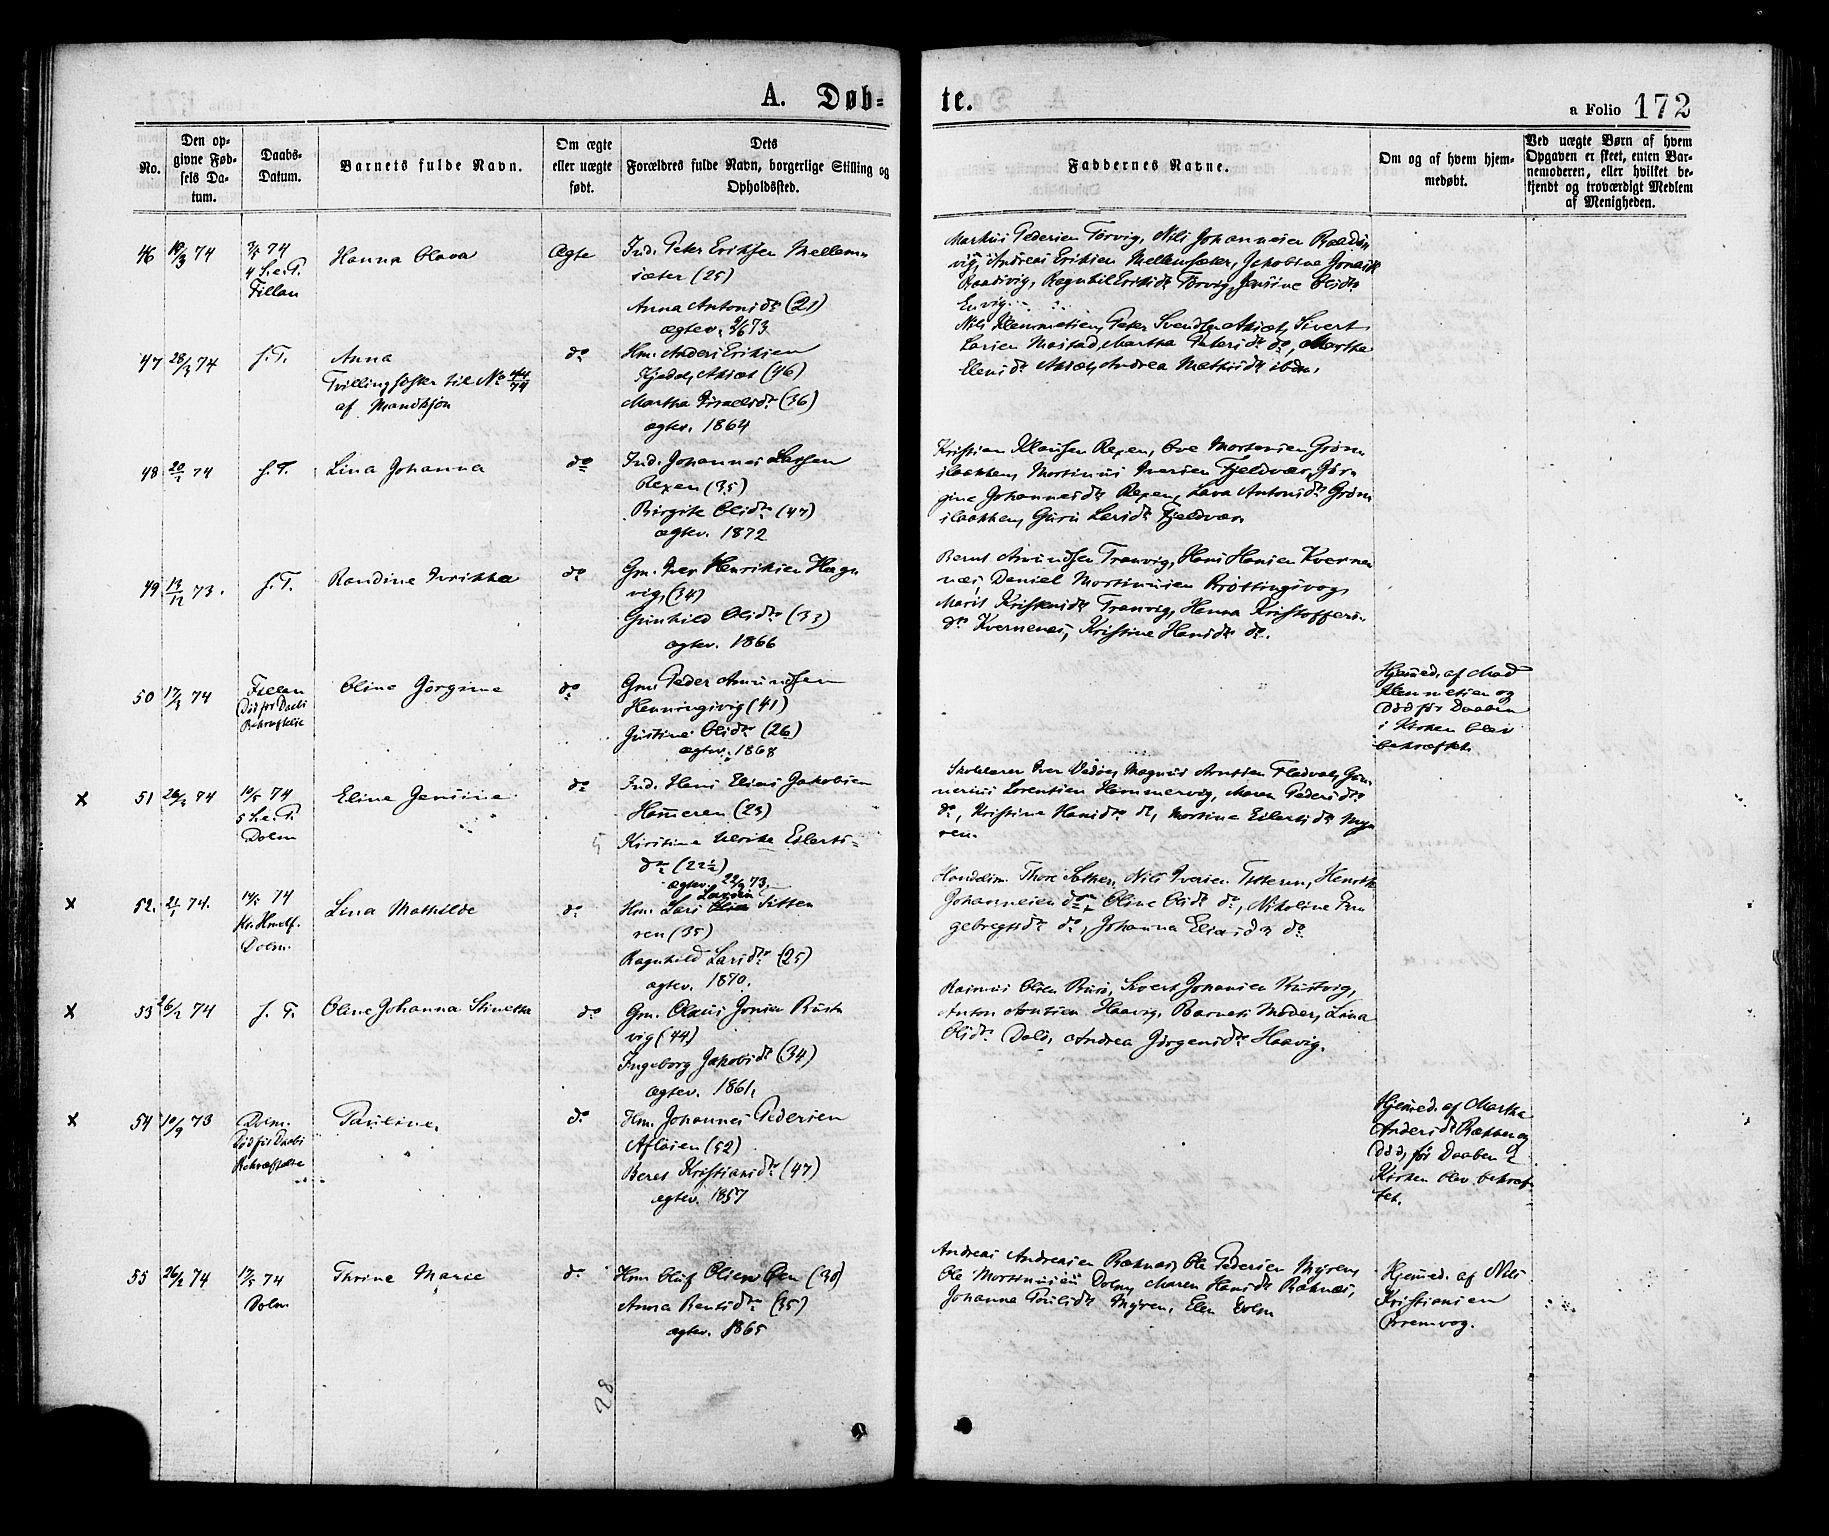 A. Døb-
te.
a Folio 172
No.
Den op-
givne Fød-
sels Da-
tum.
Daabs-
Datum.
Barnets fulde Navn.
Om ægte
eller uægte
født.
Dets
Forældres fulde Navn, borgerlige Stilling og
Opholdssted.
Faddernes Navne.
Om og af hvem hjem-
medøbt.
Ved uægte Børn af hvem
Opgaven er skeet, enten Bar-
nemoderen, eller hvilket be-
kjendt og troværdigt Medlem
af Menigheden.
46 19/3 74
3/5 74
4 S. e. P.
Fillan
Hanna Olava
Ægte
Ind. Peter Eriksen Mellem-
sæter (25)
Anna Antonsdr (21)
ægtev. 73
Markus Pedersen Torvig, Nils Johannesen
vig, Andreas Eriksen Mellemsæter, Jakobine
Ragnhil Eriksdr Torvig, Jensine Olsdr
47 28/3 74
s. T.
Anna
Tvillingsøster til No 44/74
af Mandkjøn
do
Hm. Anders Eriksen
(46)
Martha (36)
ægtev. 1864
Nils Klemmetsen, Peter Svendsen Sivert
Larsen Mastad, Martha Petersdr do, Martha
Elensdr Andrea ibdm.
48 20/1 74
s. T.
Lina Johanna
do
Ind. Johannes Larsen
Rexen (35)
Birgite Olsdr (47)
ægtev. 1872
Kristian Klausen Rexen, Ove Mortensen Grøn-
slakken, Mortinus Iversen Fjeldvær, Jør-
gine Johannesdr Rexen, Lava Antonsdr Grøn-
slakken, Guru Larsdr Fjeldvær
49 13/12 73.
s. T.
Randine Irikka
do
Gm. Iver Henriksen Hagn
vig, (34)
Gunhild Olsdr (33)
ægtev. 1866
Bernt Amundsen Tranvig, Hans Hansen Kverne-
næs, Daniel Mortinusen Brøttingsvog,
Marit Kristensdr Tranvig, Hanna Kristoffers-
dr Kvernenæs, Kristine Hansdr do.
50 17/3 74
Fillan
Død før Daabs
Bekræftelse
Oline Jørgine
do
Gm. Peder Amundsen
Henningsvig (41)
Justine Olsdr (26)
ægtev. 1868
Hjemmed. af Mad
Klemmetsen og
død før Daaben
i Kirken blev
bekræftet.
x 51 26/2 74
10/5 74
5 S. e. P.
Dolm
Eline Jensine
do
Ind. Hans Elias Jakobsen
Hammeren (23)
Kirstine Ulrike Eilerts-
dr (22½)
ægtev. 22/9 73
Skolelærer Iver Magnus Arntsen Gun-
nerius Lorentsen Hammervig, Maren Pedersdr
do, Kristine Hansdr do, Mortine Eilertsdr My-
ren.
x 52. 21/1 74.
14/5 74
Kr. Hmlf.
Dolm.
Lina Mathilde
do
Larsen
Hm. Lars Olsen Sitter-
ren (35)
Ragnhild Larsdr (25)
ægtev. 1870.
Handelsm. Thore Nils Iversen Henrik
Johannesen do, Oline Olsdr do, Nikoline In-
gebregtsdr do, Johanna Eliasdr do
x 53 26/2 74
s. T.
Oline Johanna
do
Gm. Olaus Jonsen Kust-
vig (44)
Ingeborg Jakobsdr (34)
ægtev. 1861,
Rasmus Olsen Sivert Johansen Kustvig,
Anton Arntsen Haavig, Barnets Moder, Lina
Olsdr Dalø, Andrea Jørgensdr Haavig.
x 54 10/9 73
Dolm.
Død før Daabs
Bekræftelse
Pauline,
do
Hm. Johannes Pedersen
Afløien (52)
Beret Kristiansdr (47)
ægtev. 1857
Hjemmed. af Martha
Andersdr og
død, før Daaben i
Kirken blev bekræf-
tet.
55 26/2 74
17/5 74
Dolm
Thrine Marie
do
Hm. Oluf Olsen Øen (30)
Anna Berntsdr (35)
ægtev. 1865
Andreas Andreasen Ræknæs, Ole Pedersen Myren,
Ole Mortinusen Dolm, Maren Hansdr Ræknæs,
Johanna Paulsdr Myren, Elen Dolm
Hjemmed. af Nils
Kristiansen
Bremvog.
28